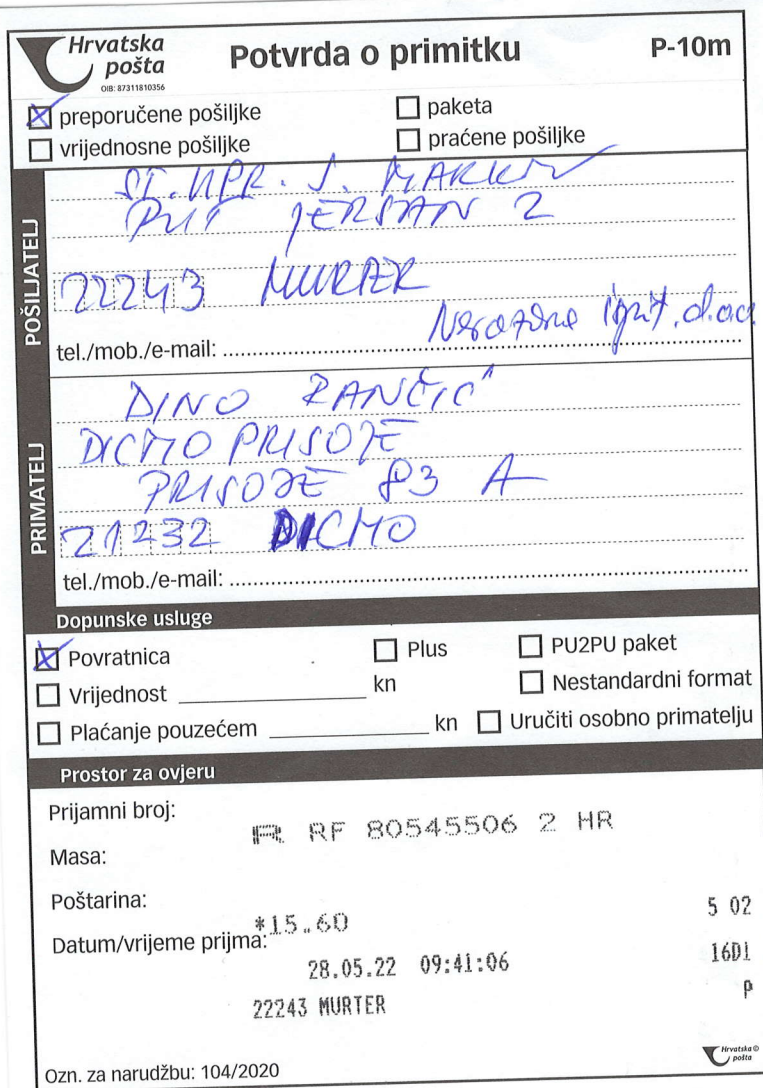 Hrvatska pošta
OIB: 87311810356
Potvrda o primitku
P-10m
preporučene pošiljke
paketa
vrijednosne pošiljke
praćene pošiljke
POŠILJATELJ
ST. UPR. J. MARKOV
PUT JERSAN 2
22243 MURTER
tel./mob./e-mail:
PRIMATELJ
DINO RANČIĆ
DICMO PRISOJE
PRISOJE 83 A
21232 DICMO
tel./mob./e-mail:
Dopunske usluge
Povratnica
Plus
PU2PU paket
Vrijednost kn
Nestandardni format
Plaćanje pouzećem kn
Uručiti osobno primatelju
Prostor za ovjeru
Prijamni broj:
R RF 80545506 2 HR
Masa:
Poštarina:
*15.60
5 02
Datum/vrijeme prijma:
28.05.22 09:41:06
16D1
22243 MURTER
P
Ozn. za narudžbu: 104/2020
Hrvatska pošta